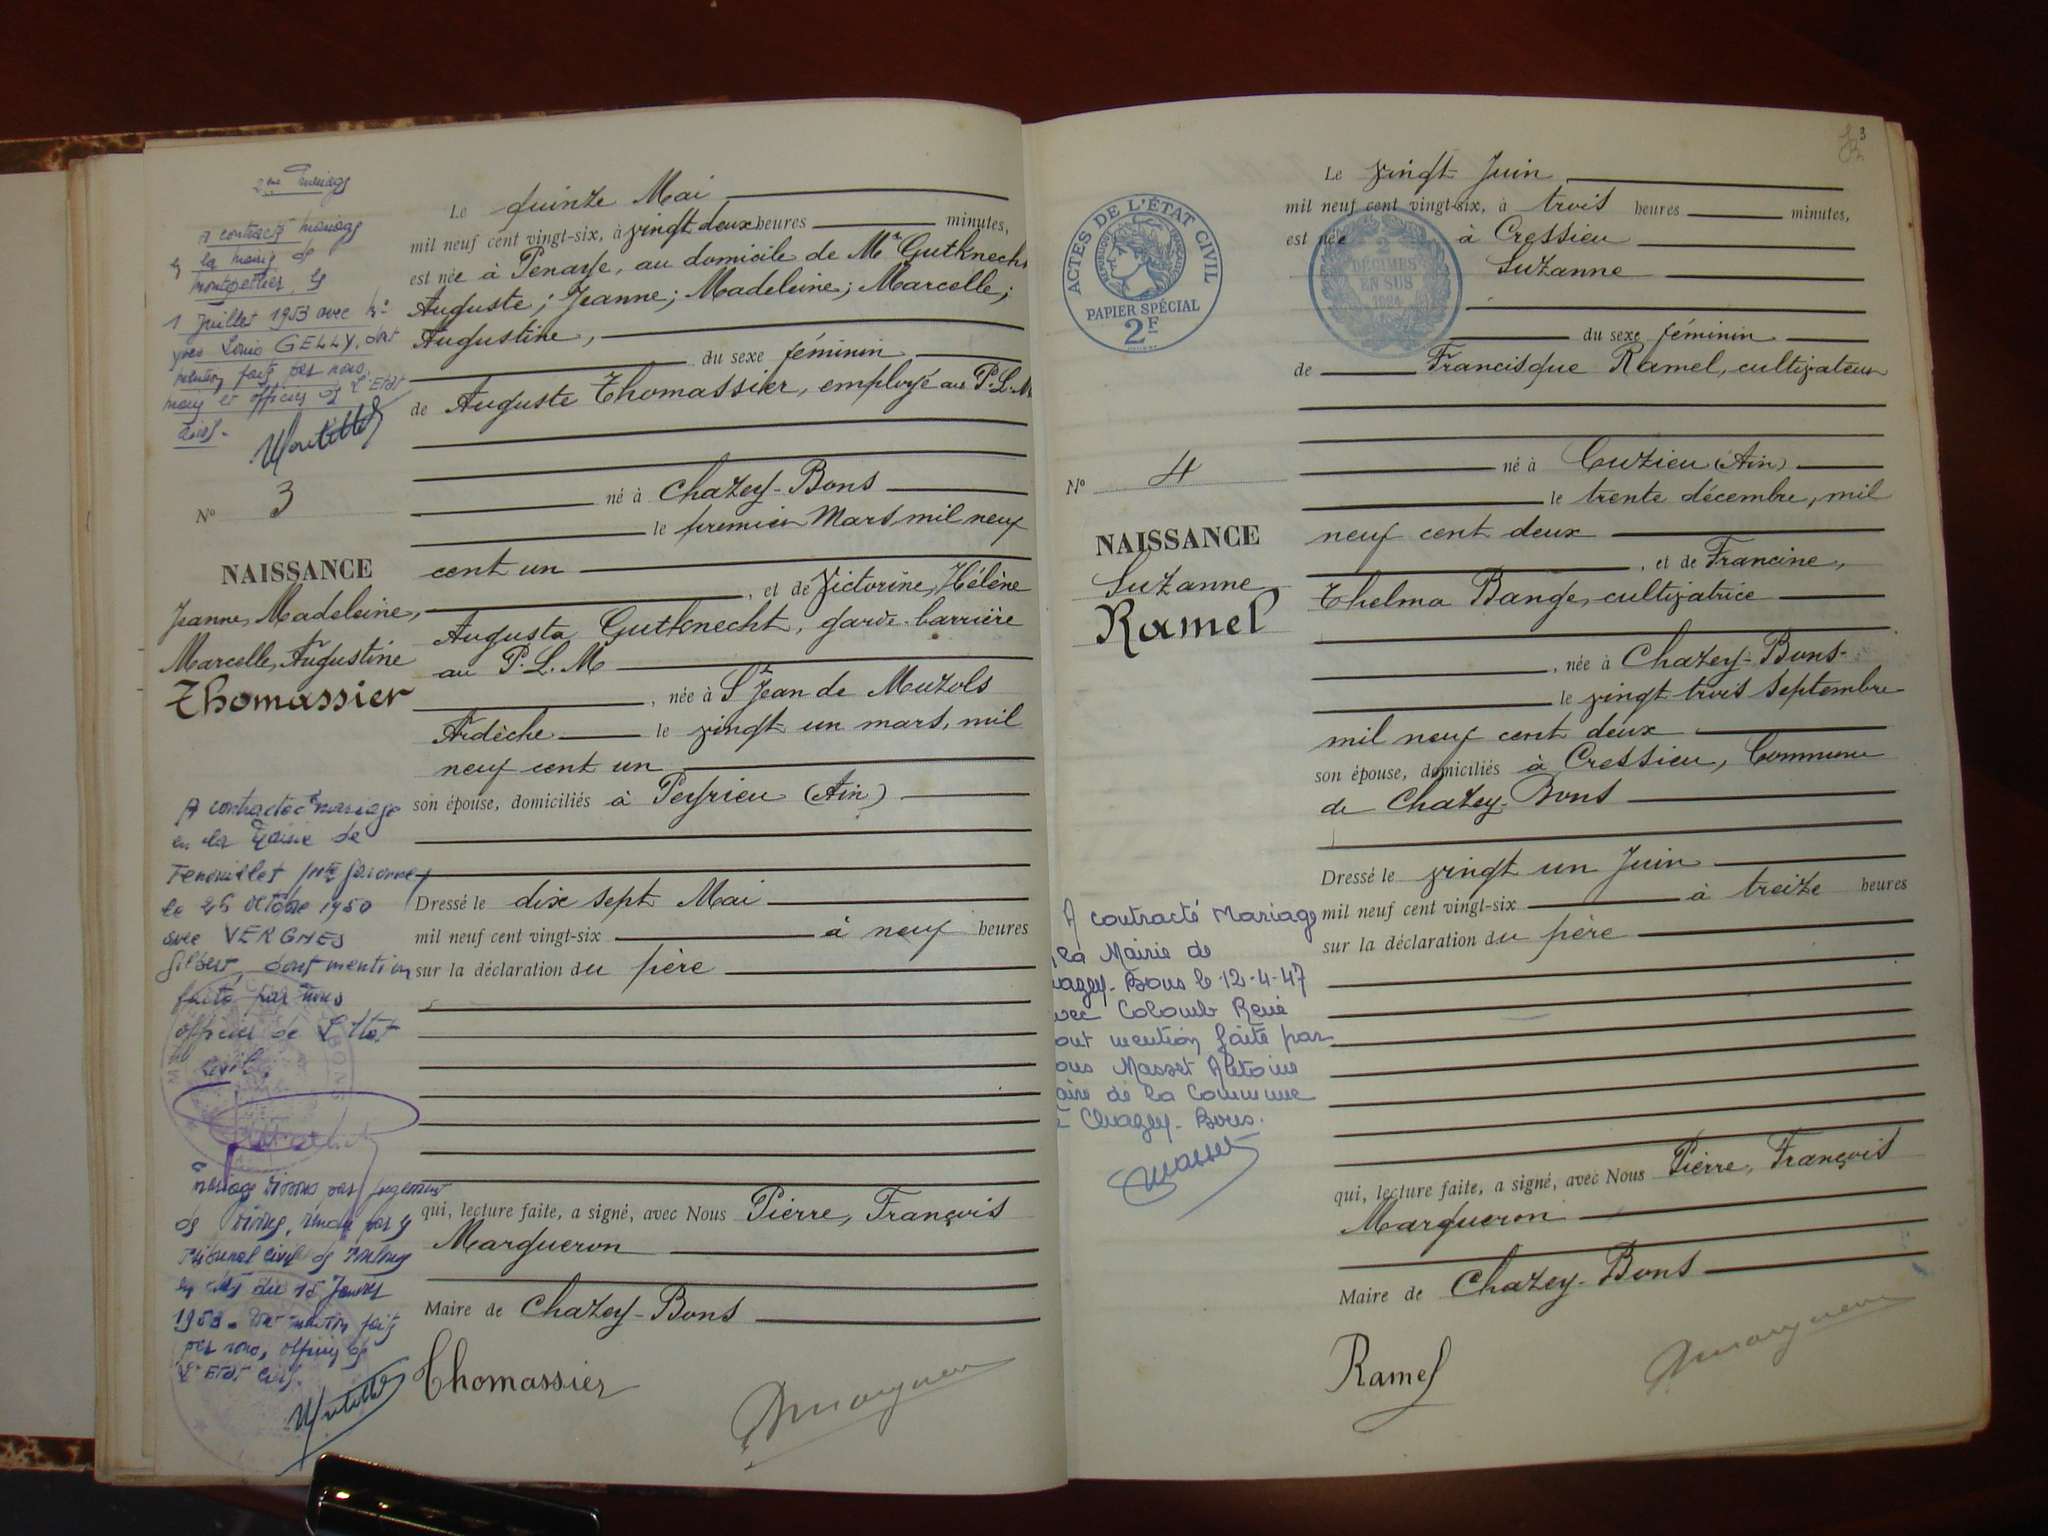 2me mariage
A contracté mariage
à la mairie de
Montpellier, le
1 Juillet 1953 avec
Yves Louis GELLY, dont
mention faite par nous,
maire et officier de l'Etat
civil.
N° 3
NAISSANCE
Jeanne, Madeleine,
Marcelle, Augustine
Thomassier
A contracté mariage
en la Mairie de
Fenouillet
le 26 octobre 1950
avec VERGNES
Gilbert, dont mention
faite par nous
officier de l'Etat
civil.
Mariage dissous par jugement
de divorce, rendu par le
Tribunal Civil de
en date du 15 Janvier
1953. Dont mention faite
par nous, officier de
l'Etat civil.
Le quinze Mai
mil neuf cent vingt-six, à vingt deux heures minutes,
est née à Penaye, au domicile de Mr Gutknecht
Auguste; Jeanne; Madeleine; Marcelle;
Augustine,
du sexe féminin
de Auguste Thomassier, employé au P.L.M
né à Chazey-Bons
le premier Mars, mil neuf
cent un
, et de Victorine, Hélène
Augusta Gutknecht, garde-barrière
au P.L.M
, née à St Jean de Muzols
Ardèche le vingt un mars, mil
neuf cent un
son épouse, domiciliés à Peyrieu (Ain)
Dressé le dix sept Mai
mil neuf cent vingt-six à neuf heures
sur la déclaration du père
qui, lecture faite, a signé, avec Nous Pierre, François
Margueron
Maire de Chazey-Bons
Thomassier
Margueron
3
ACTES DE L'ÉTAT CIVIL
RÉPUBLIQUE FRANÇAISE
PAPIER SPÉCIAL
2F
2
DÉCIMES
EN SUS
1924
N° 4
NAISSANCE
Suzanne
Ramel
A contracté Mariage
la Mairie de
azey-Bons le 12-4-47
vec Colomb René
ont mention faite par
ous Masset Antoine
aire de la Commune
e Chazey-Bons.
Masset
Le vingt Juin
mil neuf cent vingt-six, à trois heures minutes,
est née à Cressieu
Suzanne
du sexe féminin
de Francisque Ramel, cultivateur
né à Cuzieu (Ain)
le trente décembre, mil
neuf cent deux
, et de Francine,
Thelma Bange, cultivatrice
, née à Chazey-Bons
le vingt trois septembre
mil neuf cent deux
son épouse, domiciliés à Cressieu, Commune
de Chazey-Bons
Dressé le vingt un Juin
mil neuf cent vingt-six à treize heures
sur la déclaration du père
qui, lecture faite, a signé, avec Nous Pierre, François
Margueron
Maire de Chazey-Bons
Ramel
Margueron